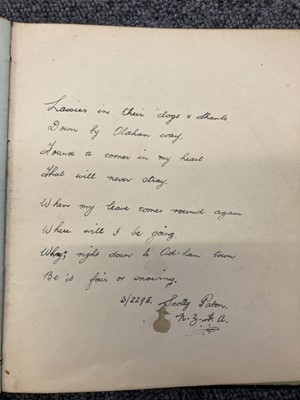 Lassies in their clogs & shawls
Down by Oldham way.
Found a corner in my heart
That will never stray.
When my leave comes round again
Where will I be going.
Why; right down to Od-ham town
Be it fair or snowing.
2/2298. Scotty Paton.
N.Z.F.A.